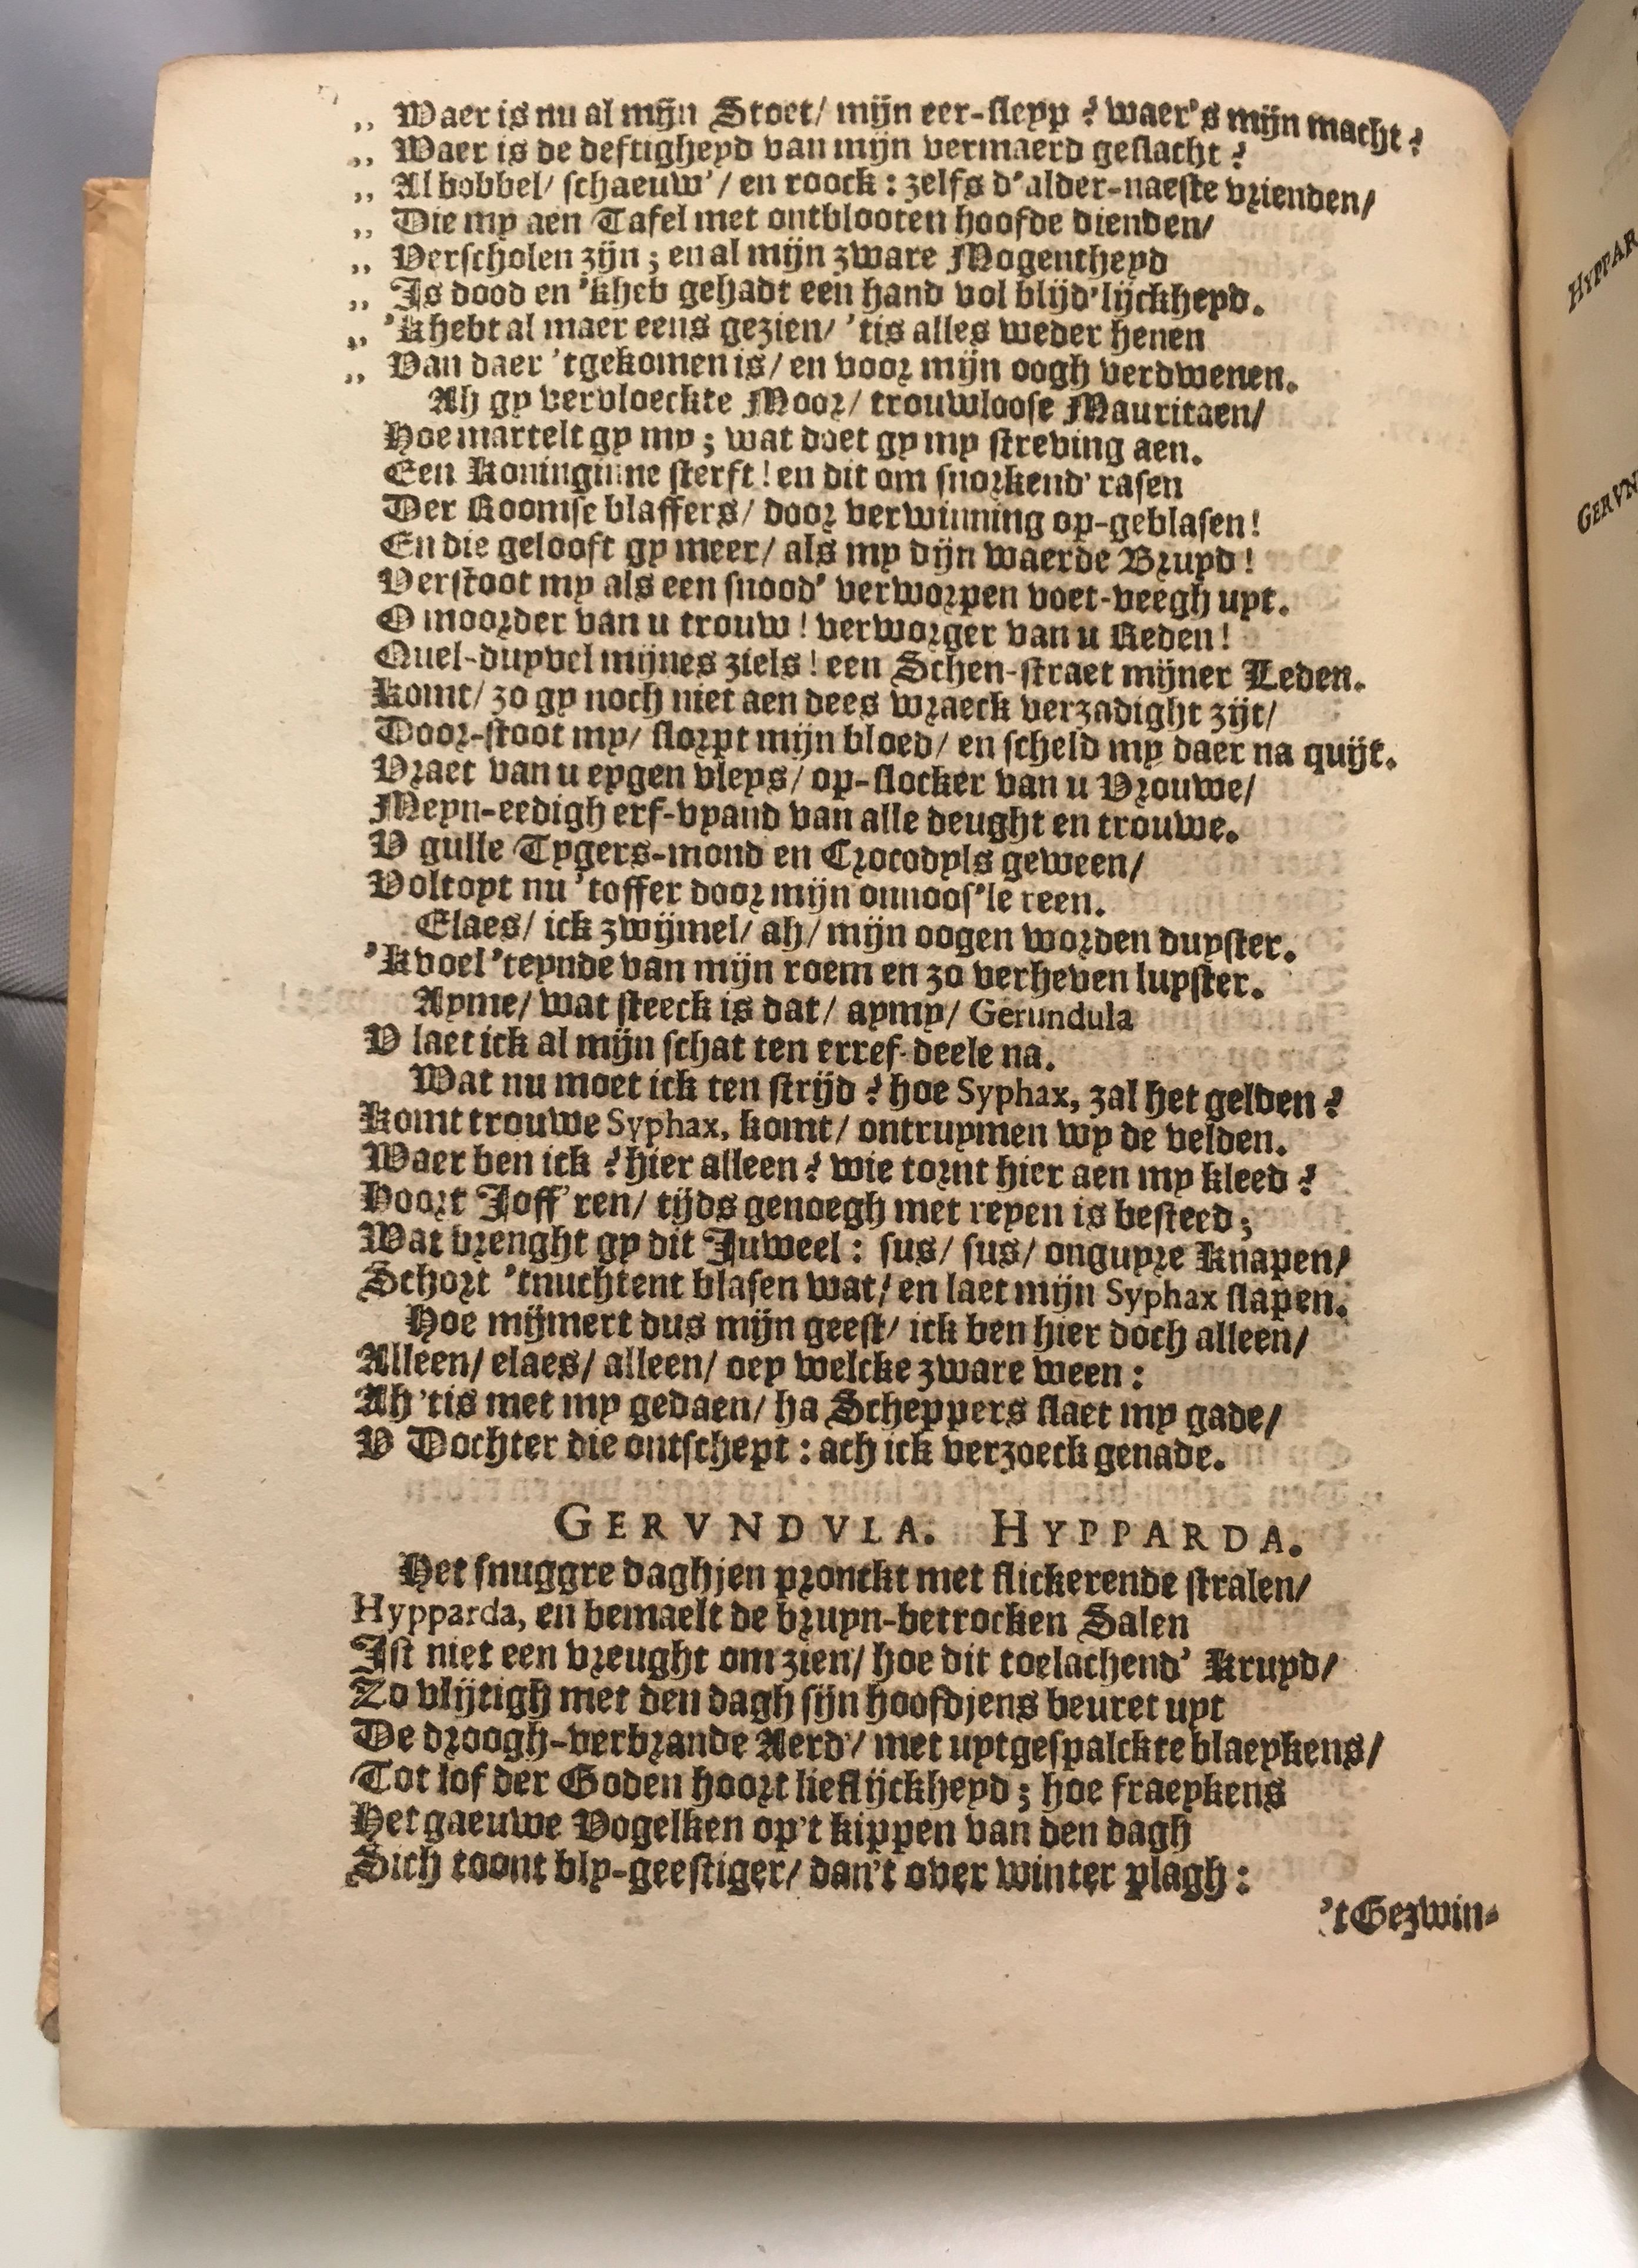 „ Waer is nu al mijn Stoet/ mijn eer-sleyp? waer's mijn macht?
„ Waer is de deftigheyd van mijn vermaerd geslacht?
„ Al bobbel/ schaeuw'/ en roock: zelfs d'alder-naeste vrienden/
„ Die my aen Tafel met ontblooten hoofde dienden/
„ Verscholen zijn; en al mijn zware Mogentheyd
„ Is dood en 'kheb gehadt een hand vol blijd'lijckheyd.
„ 'K hebt al maer eens gezien/ 'tis alles weder henen
„ Van daer 'tgekomen is/ en voor mijn oogh verdwenen.
Ah gy vervloeckte Moor/ trouwloose Mauritaen/
Hoe martelt gy my; wat doet gy my streving aen.
Een Koninginne sterft! en dit om snorkend' rasen
Der Roomse blaffers/ door verwinning op-geblasen!
En die gelooft gy meer/ als my dijn waerde Bruyd!
Verstoot my als een snood' verworpen voet-veegh uyt.
O moorder van u trouw! verworger van u Reden!
Quel-duyvel mijnes ziels! een Schen-straet mijner Leden.
Komt/ zo gy noch niet aen dees wraeck verzadight zijt/
Door-stoot my/ slorpt mijn bloed/ en scheld my daer na quijt.
Vraet van u eygen vleys/ op-slocker van u Vrouwe/
Meyn-eedigh erf-vyand van alle deught en trouwe.
V gulle Tygers-mond en Crocodyls geween/
Voltoyt nu 'toffer door mijn onnoos'le reen.
Elaes/ ick zwijmel/ ah/ mijn oogen worden duyster.
'K voel 'teynde van mijn roem en zo verheven luyster.
Ayme/ wat steeck is dat/ aymy/ Gerundula
V laet ick al mijn schat ten erref-deele na.
Wat nu moet ick ten strijd? hoe Syphax, zal het gelden?
Komt trouwe Syphax, komt/ ontruymen wy de velden.
Waer ben ick? hier alleen? wie tornt hier aen my kleed?
Hoort Joff'ren/ tijds genoegh met reyen is besteed;
Wat brenght gy dit Juweel: sus/ sus/ onguyre Knapen/
Schort 'tnuchtent blasen wat/ en laet mijn Syphax slapen.
Hoe mijmert dus mijn geest/ ick ben hier doch alleen/
Alleen/ elaes/ alleen/ oey welcke zware ween:
Ah 'tis met my gedaen/ ha Scheppers slaet my gade/
V Dochter die ontschept: ach ick verzoeck genade.
GERVNDVLA. HYPPARDA.
Het snuggre daghjen pronckt met flickerende stralen/
Hypparda, en bemaelt de bruyn-betrocken Salen
Ist niet een vreught om zien/ hoe dit toelachend' Kruyd/
Zo vlijtigh met den dagh sijn hoofdjens beuret uyt
De droogh-verbrande Aerd'/ met uytgespalckte blaeykens/
Tot lof der Goden hoort lieflijckheyd; hoe fraeykens
Het gaeuwe Vogelken op't kippen van den dagh
Sich toont bly-geestiger/ dan't over winter plagh:
't Gezwin-
HYPPAR
GERVN